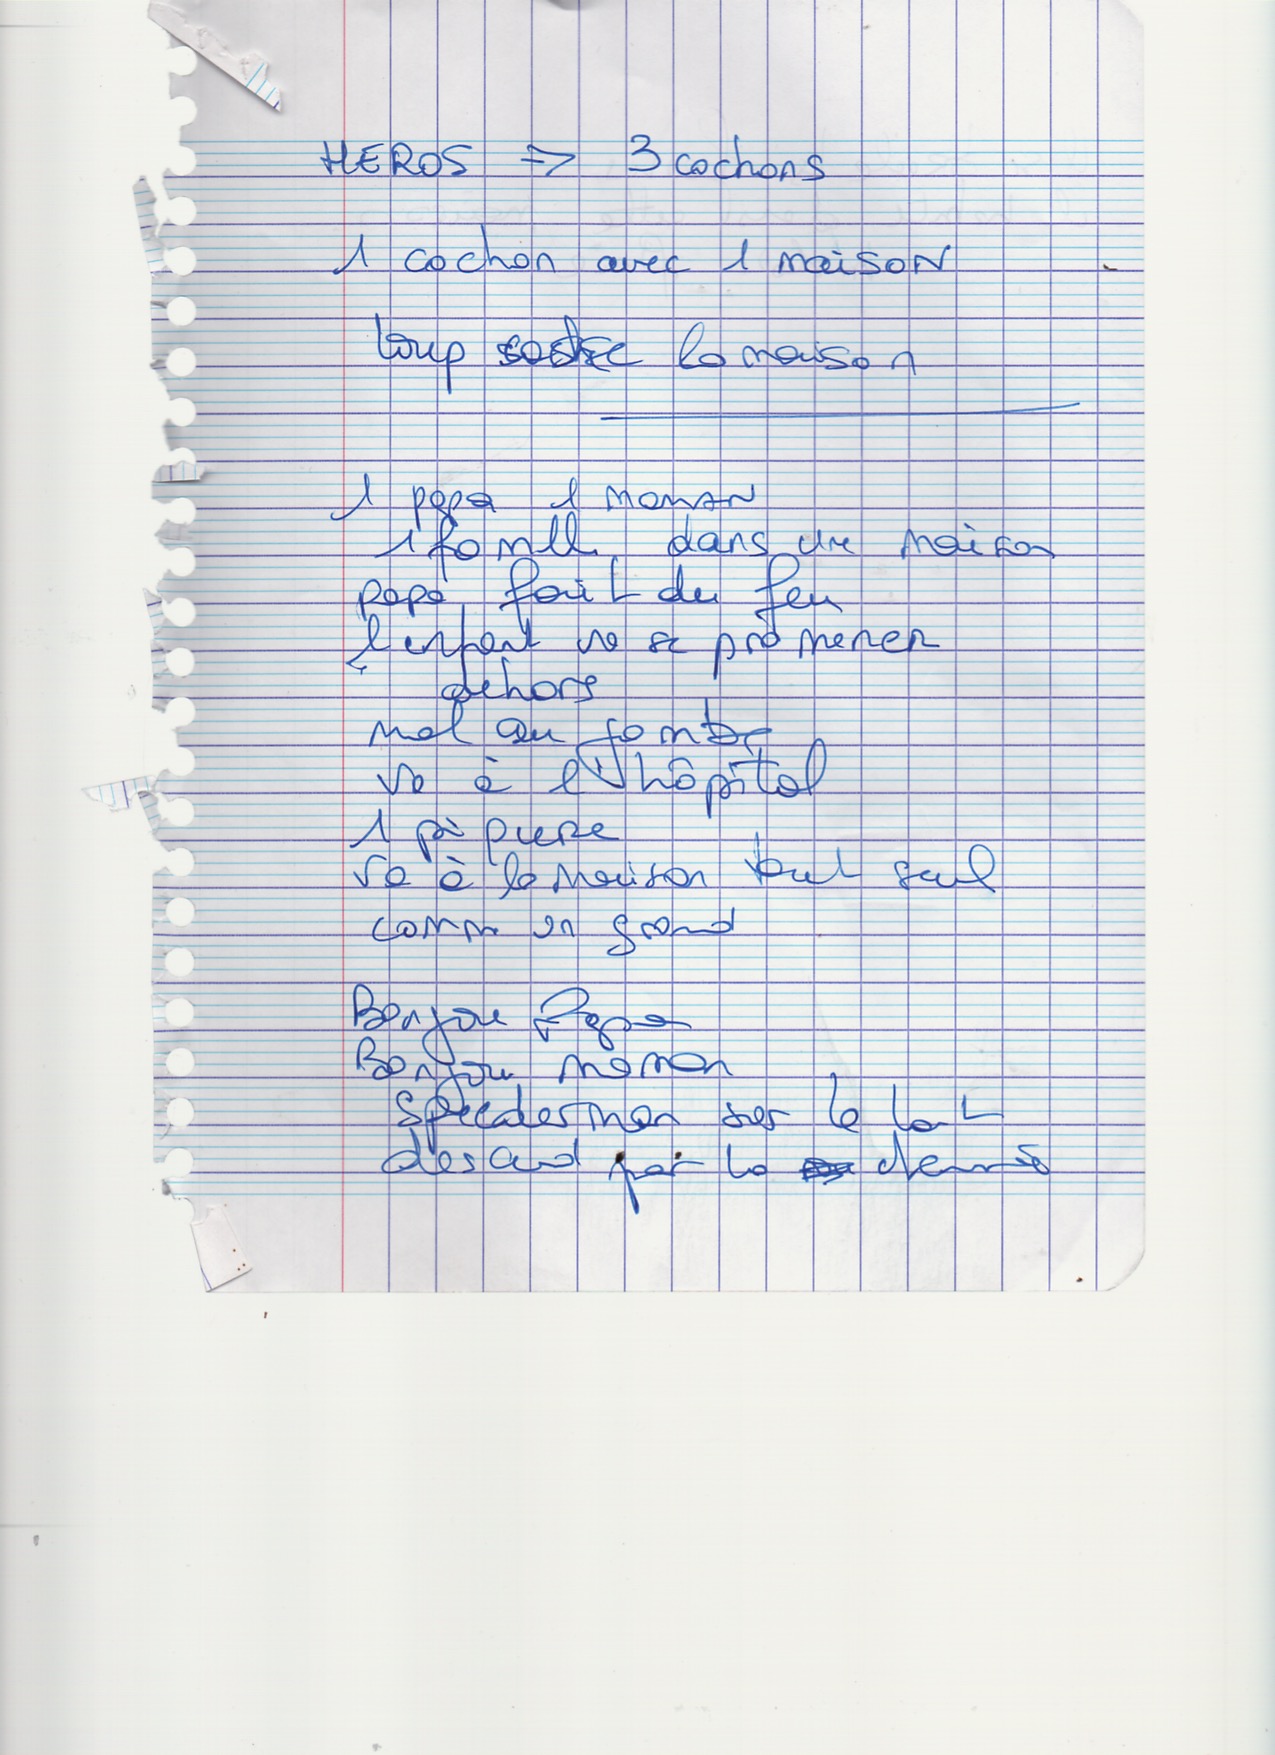 HEROS => 3 cochons
1 cochon avec 1 maison
loup la maison
1 papa 1 maman
1 famille dans une maison
papa fait du feu
l'enfant va se promener
dehors
mal au jambe
va à l'hôpital
1 piqure
va à la maison tout seul
comme un grand
Bonjour Papa
Bonjour maman
Speederman sur le toit
descend par la